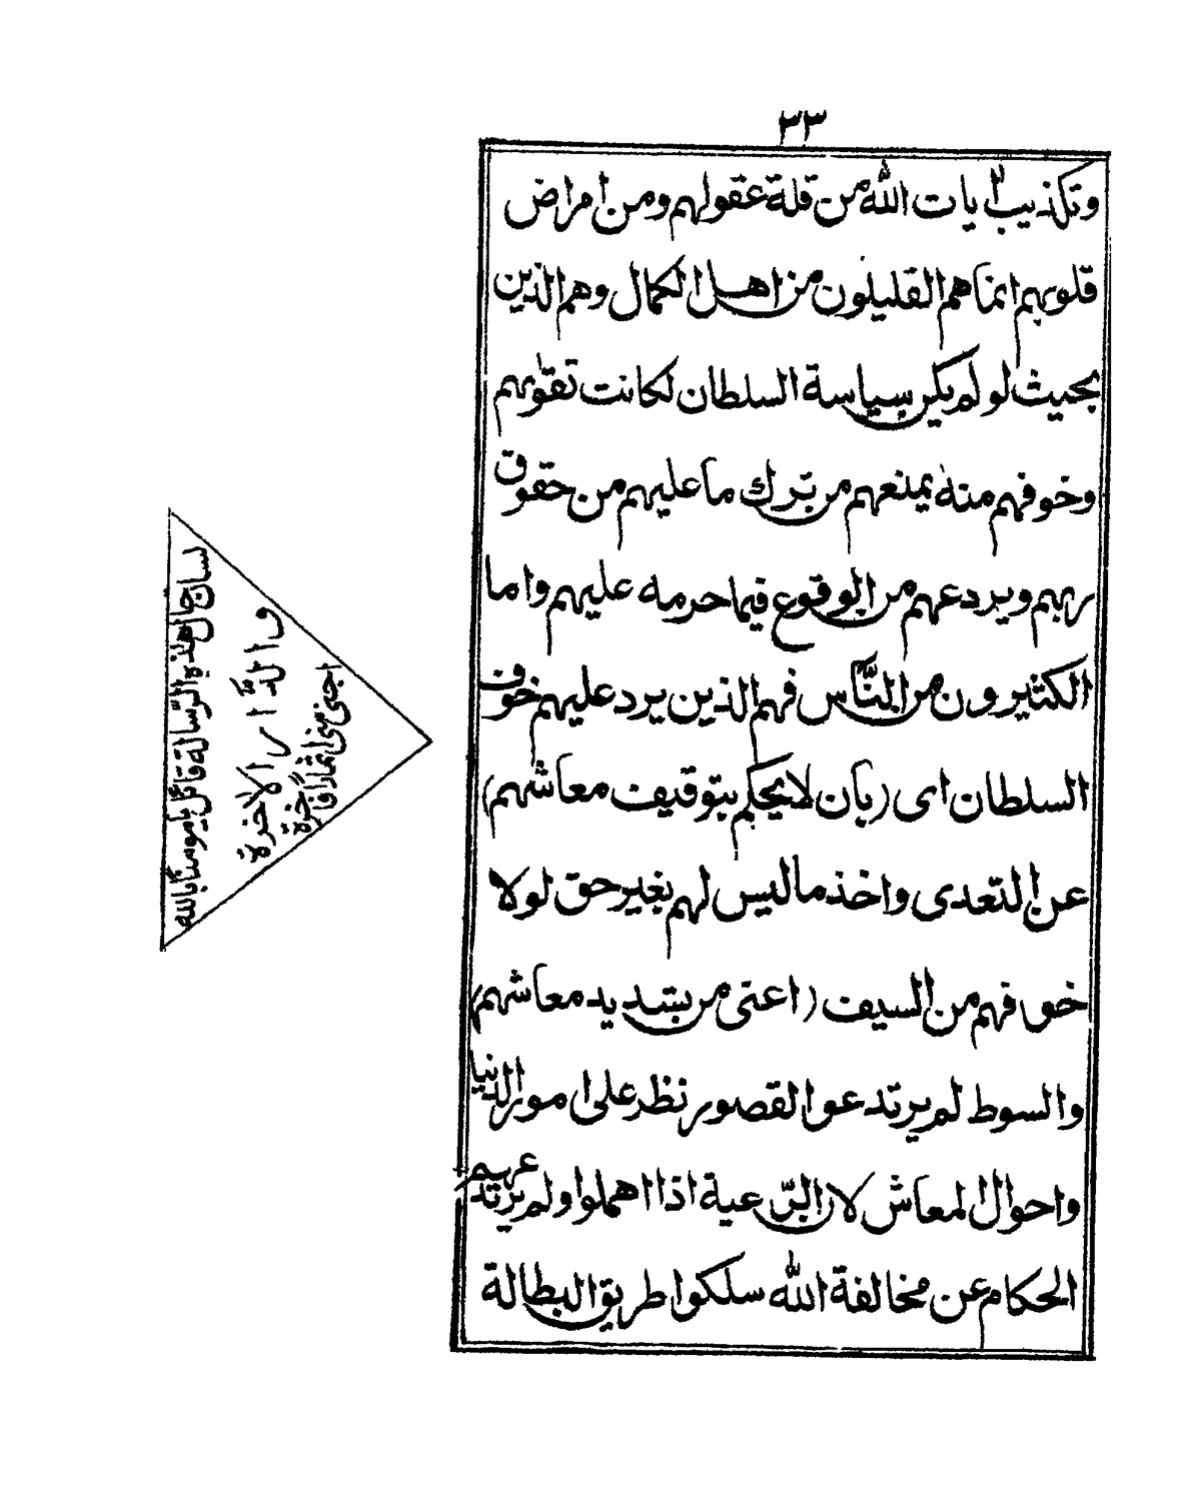 ٣٣
وتكذيب اٰيات الله من قلة عقولهم ومن امراض
قلوبهم انما هم القليلون من اهل الكمال وهم الذين
بحيث لو لم يكن سياسة السلطان لكانت تقوٰيهم
وخوفهم منه يمنعهم من ترك ما عليهم من حقوق
ربهم ويردعهم من الوقوع فيما حرمه عليهم واما
الكثيرون من النَّاس فهم الذين يرد عليهم خوف
السلطان اى (بان لا يحكم بتوقيف معاشهم)
عن التعدى واخذ ما ليس لهم بغير حق لولا
خوفهم من السيف (اعنى من تبديد معاشهم)
والسوط لم يرتدعوا لقصور نظر على امور الدنيا
واحوال المعاش لان الرّعية اذا اهملوا ولم يرتدعهم
الحكام عن مخالفة الله سلكوا طريق البطالة
لسان حال هذه الرسالة قائل يا مومنا بالله
والدَّار الاخرة
اجنى منى اثمارًا فاخرة